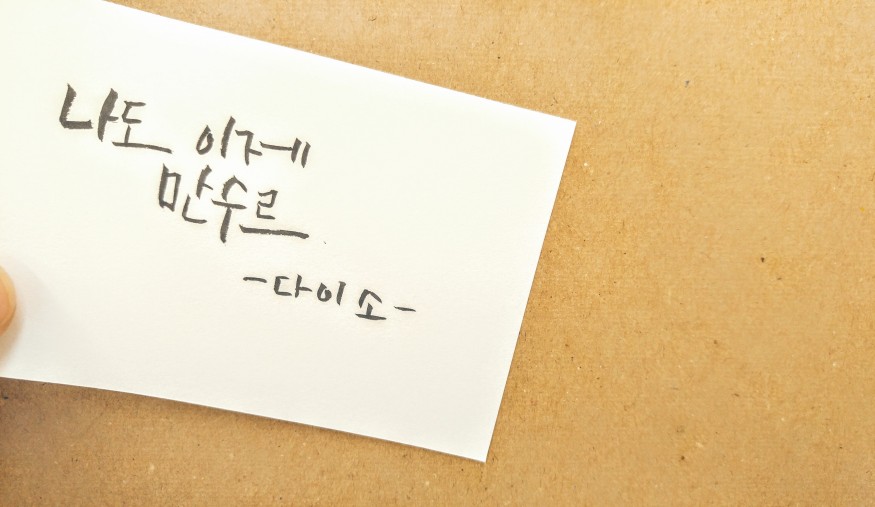 나도 이제
만수르
-다이소-